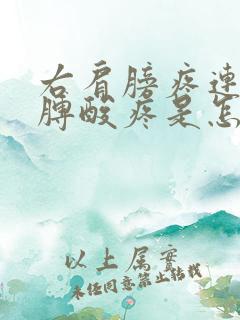 右肩膀疼连
胛酸疼是怎
以上属实
未经同意禁止转载